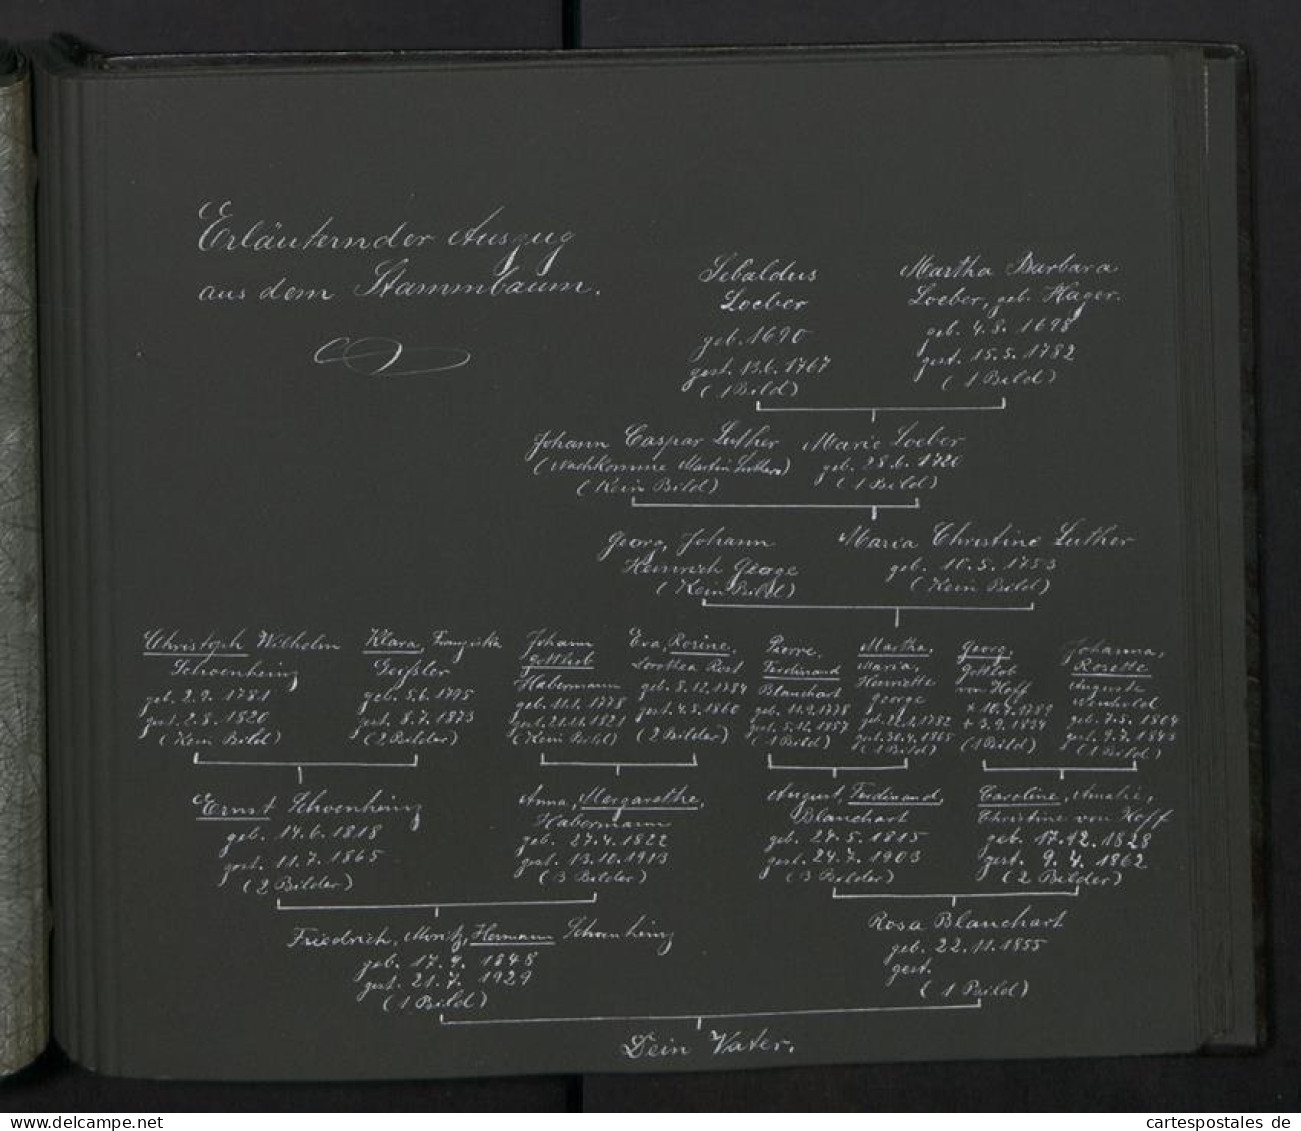 Erläuternder Auszug
aus dem Stammbaum.
Sebaldus
Loeber
geb. 1690
gest. 13.6.1767
(1 Bild)
Martha Barbara
Loeber, geb. Hager.
geb. 4.8. 1698
gest. 15.5. 1782
(1 Bild)
Johann Caspar Luther
(Nachkomme Martin Luthers)
(Kein Bild)
Marie Loeber
geb. 28.6. 1720
(1 Bild)
Georg, Johann
Heinrich George
(Kein Bild)
Maria Christine Luther
geb. 10.5. 1753
(Kein Bild)
Christoph Wilhelm
Schoenheinz
geb. 2.9. 1781
gest. 2.8. 1820
(Kein Bild)
Klara, Franziska
Geißler
geb. 5.6. 1795
gest. 8.7. 1873
(2 Bilder)
Johann
Gottlieb
Habermann
geb. 11.1. 1778
gest. 1821
(Kein Bild)
Eva, Rosine,
Dorothea
geb. 8.12. 1784
gest. 4.5. 1860
(2 Bilder)
Pierre,
Ferdinand
Blanchart
geb. 1778
gest. 1857
(1 Bild)
Martha,
Maria,
Henriette
George
geb. 1782
gest. 1865
(1 Bild)
Georg,
Gottlob
von Hoff
* 10.7. 1789
+ 3.9. 1834
(1 Bild)
Johanna,
Rosette
Auguste
geb. 7.5. 1804
gest. 9.7. 1843
(1 Bild)
Ernst Schoenheinz
geb. 14.6. 1818
gest. 11.7. 1865
(2 Bilder)
Anna, Margarethe,
Habermann
geb. 27.4. 1822
gest. 13.10. 1913
(3 Bilder)
August, Ferdinand,
Blanchart
geb. 27.5. 1815
gest. 24.7. 1903
(3 Bilder)
Caroline, Amalie,
Christine von Hoff
geb. 17.12. 1828
gest. 9.4. 1862
(2 Bilder)
Friedrich, Moritz, Hermann Schoenheinz
geb. 17.9. 1848
gest. 21.7. 1929
(1 Bild)
Rosa Blanchart
geb. 22.11. 1855
gest.
(1 Bild)
Dein Vater.
www.delcampe.net
cartespostales de